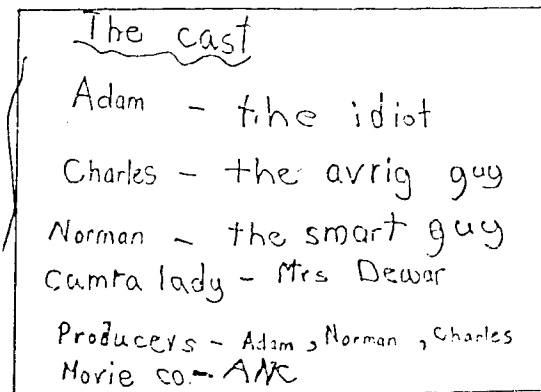 The cast
Adam - the idiot
Charles - the avrig guy
Norman - the smart guy
Camra lady - Mrs Dewar
Producers - Adam, Norman, Charles
Movie co. - ANC